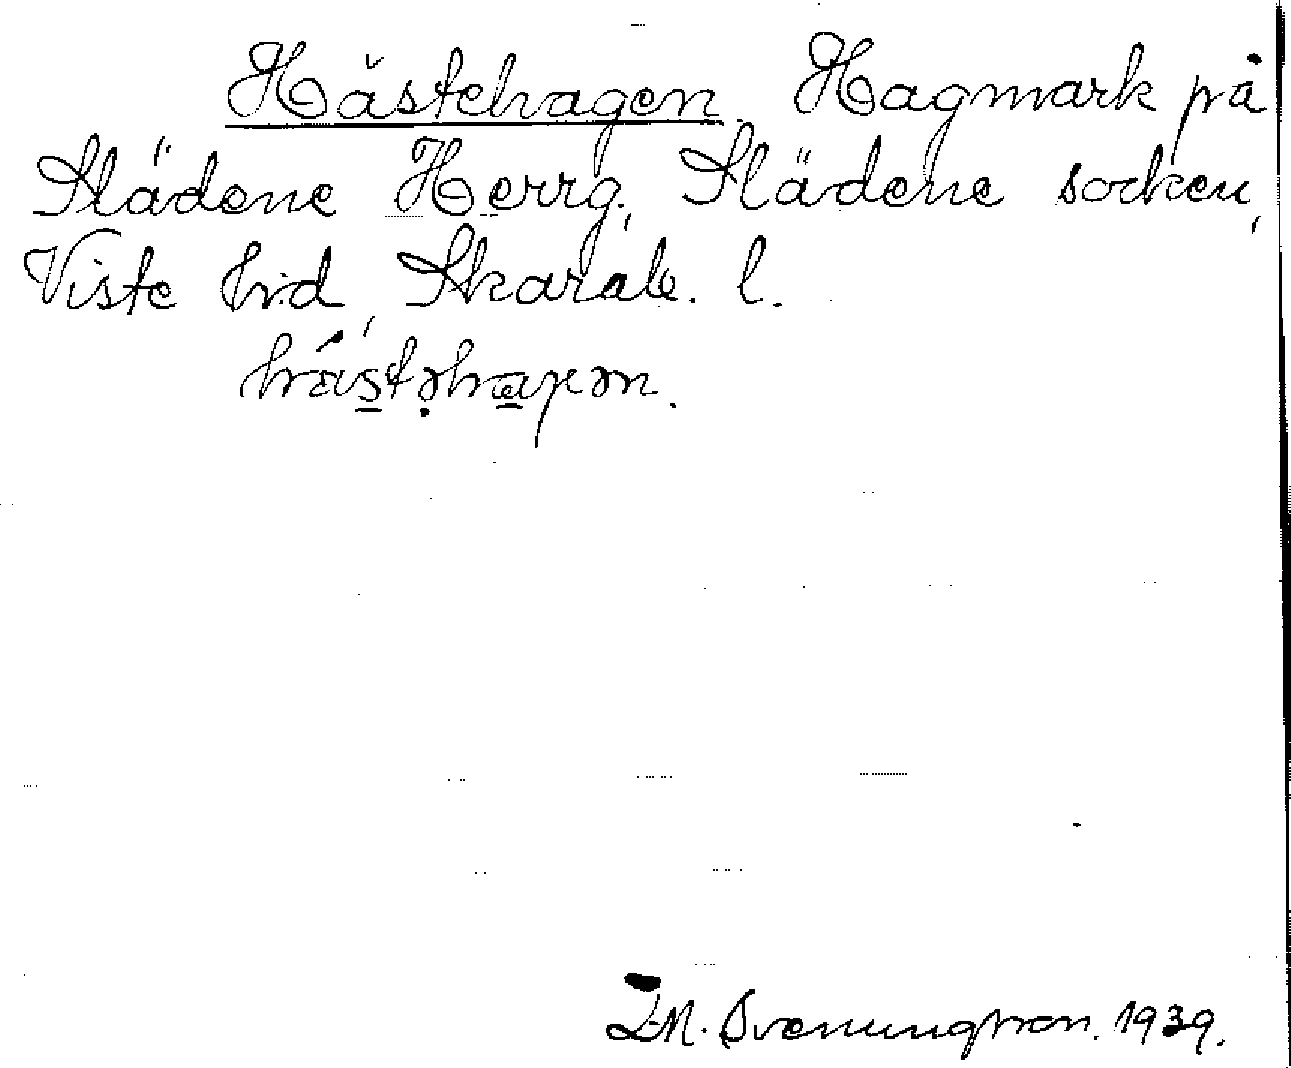 Hästehagen Hagmark på
Slädene Herrg., Slädene socken,
Viste hd, Skarab. l.
1939.